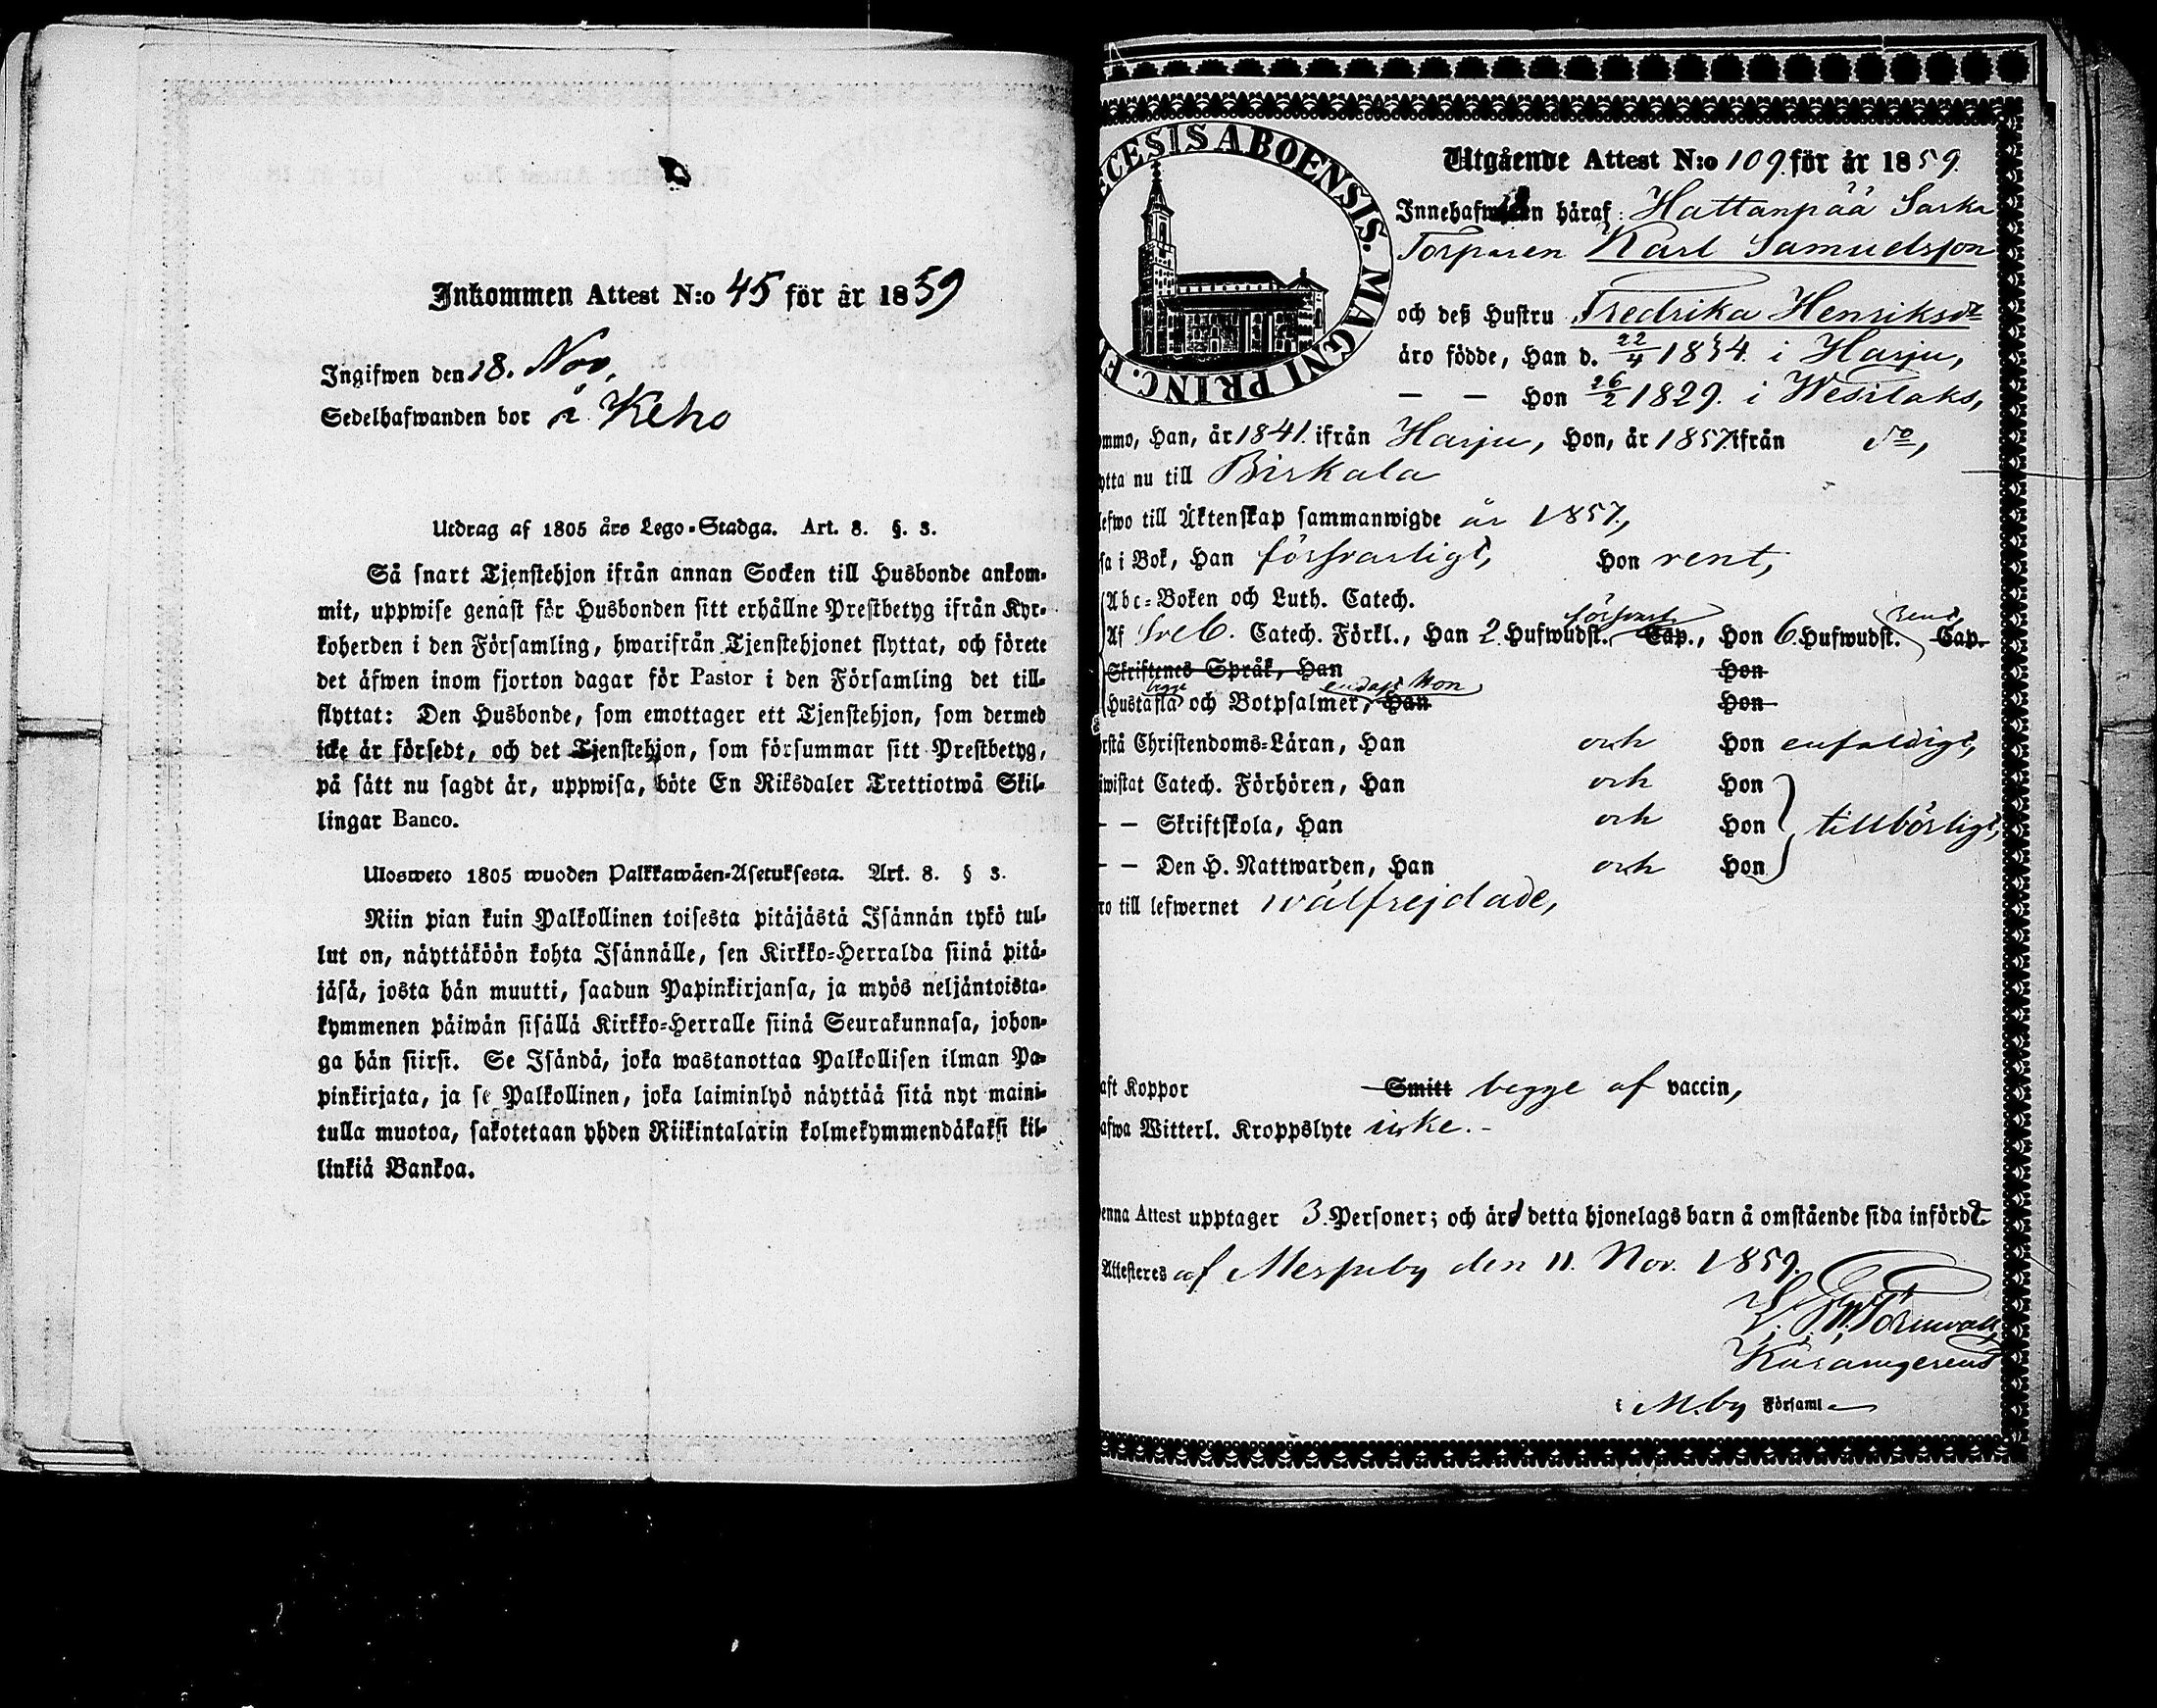 Inkommen Attest N:o 45 för år 1859
Ingifwen den 18. Nov.
Sedelhafwanden bor å Keho
Utdrag af 1805 års Lego-Stadga. Art. 8. §. 3.
Så snart Tjenstehjon ifrån annan Socken till Husbonde ankom-
mit, uppwise genast för Husbonden sitt erhållne Prestbetyg ifrån Kyr-
koherden i den Församling, hwarifrån Tjenstehjonet flyttat, och förete
det äfwen inom fjorton dagar för Pastor i den Församling det till-
flyttat: Den Husbonde, som emottager ett Tjenstehjon, som dermed
icke är försedt, och det Tjenstehjon, som försummar sitt Prestbetyg,
på sätt nu sagdt är, uppwisa, böte En Riksdaler Trettiotwå Skil-
lingar Banco.
Ulosweto 1805 wuoden Palkkawäen-Asetuksesta. Art. 8. § 3.
Niin pian kuin Palkollinen toisesta pitäjästä Isännän tykö tul-
lut on, näyttäköön kohta Isännälle, sen Kirkko-Herralda siinä pitä-
jäsä, josta hän muutti, saadun Papinkirjansa, ja myös neljäntoista-
kymmenen päiwän sisällä Kirkko-Herralle siinä Seurakunnasa, johon-
ga hän siirsi. Se Isändä, joka wastanottaa Palkollisen ilman Pa-
pinkirjata, ja se Palkollinen, joka laiminlyö näyttää sitä nyt maini-
tulla muotoa, sakotetaan yhden Riikintalarin kolmekymmendäkaksi kil-
linkiä Bankoa.
ECESIS ABOENSIS. MAGNI PRINC. F
Utgående Attest N:o 109. för år 1859.
Innehafwaren häraf: Hattanpää Sarka
Torparen Karl Samuelsson
och deß Hustru Fredrika Henriksdr
äro födde, Han d. 22/4 1834. i Harju,
— — Hon 26/2 1829. i Wesilaks,
ommo, Han, år 1841. ifrån Harju, Hon, år 1857. ifrån do,
ytta nu till Birkala
lefwo till Äktenskap sammanwigde år 1857,
sa i Bok, Han förswarligt, Hon rent,
Abc-Boken och Luth. Catech.
Af Sveb. Catech. Förkl., Han 2. Hufwudst. förswarl. Cap., Hon 6. Hufwudst. rent, Cap.
Skriftenes Språk, Han Hon
Hustafla begge och Botpsalmer, endast Hon Han Hon
rstå Christendoms-Läran, Han och Hon enfaldigt,
iwistat Catech. Förhören, Han och Hon
— — Skriftskola, Han och Hon tillbörligt,
— — Den H. Nattwarden, Han och Hon
ro till lefwernet wälfrejdade,
aft Koppor Smitt begge af vaccin,
afwa Witterl. Kroppslyte icke. -
enna Attest upptager 3. Personer; och äro detta hjonelags barn å omstående sida införde.
Attesteres af Messuby den 11. Nov. 1859.
i M.by Församl